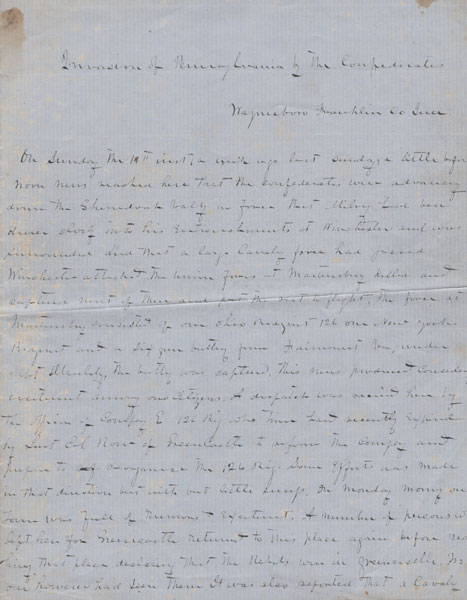 Invasion of Pennsylvania by the Confederates
Waynesboro Franklin Co June
On Sunday the 14th inst, a week ago last Sunday a little after
noon news reached here that the Confederates were advancing
down the Valy in force that Milroy had been
driven into his Entrenchments at Winchester and was
surrounded And that a large Cavalry force had passed
Winchester attacked the Union forces at Martinsburg killed and
captured most of them and put the rest to flight, the force at
Martinsburg consisted of one Ohio Regiment 126 one New York
Regiment and a Six gun battery from Fairmount Va, under
Capt the battery was captured, This news produced
excitement among our Citizens. A despatch was received here by
the officers of Company E 126 Reg who time had recently expired
by Lieut Col Rowe of Greencastle to reform the Company and
prepare to reorganise the 126 Reg. Some Efforts was made
in that direction but with but little success. On Monday morning our
town was full of Rumours & Excitement. A number of persons who
left here for Greencastle returned to this place again before
that place that the Rebels were in Greencastle. No
one however had seen them It was also reported that a Cavalry